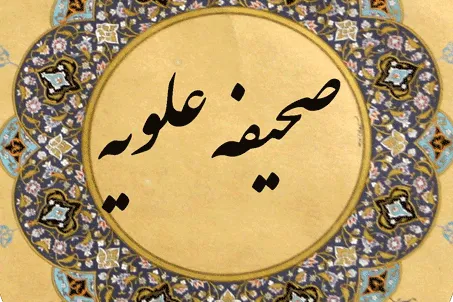 صحیفه علویه